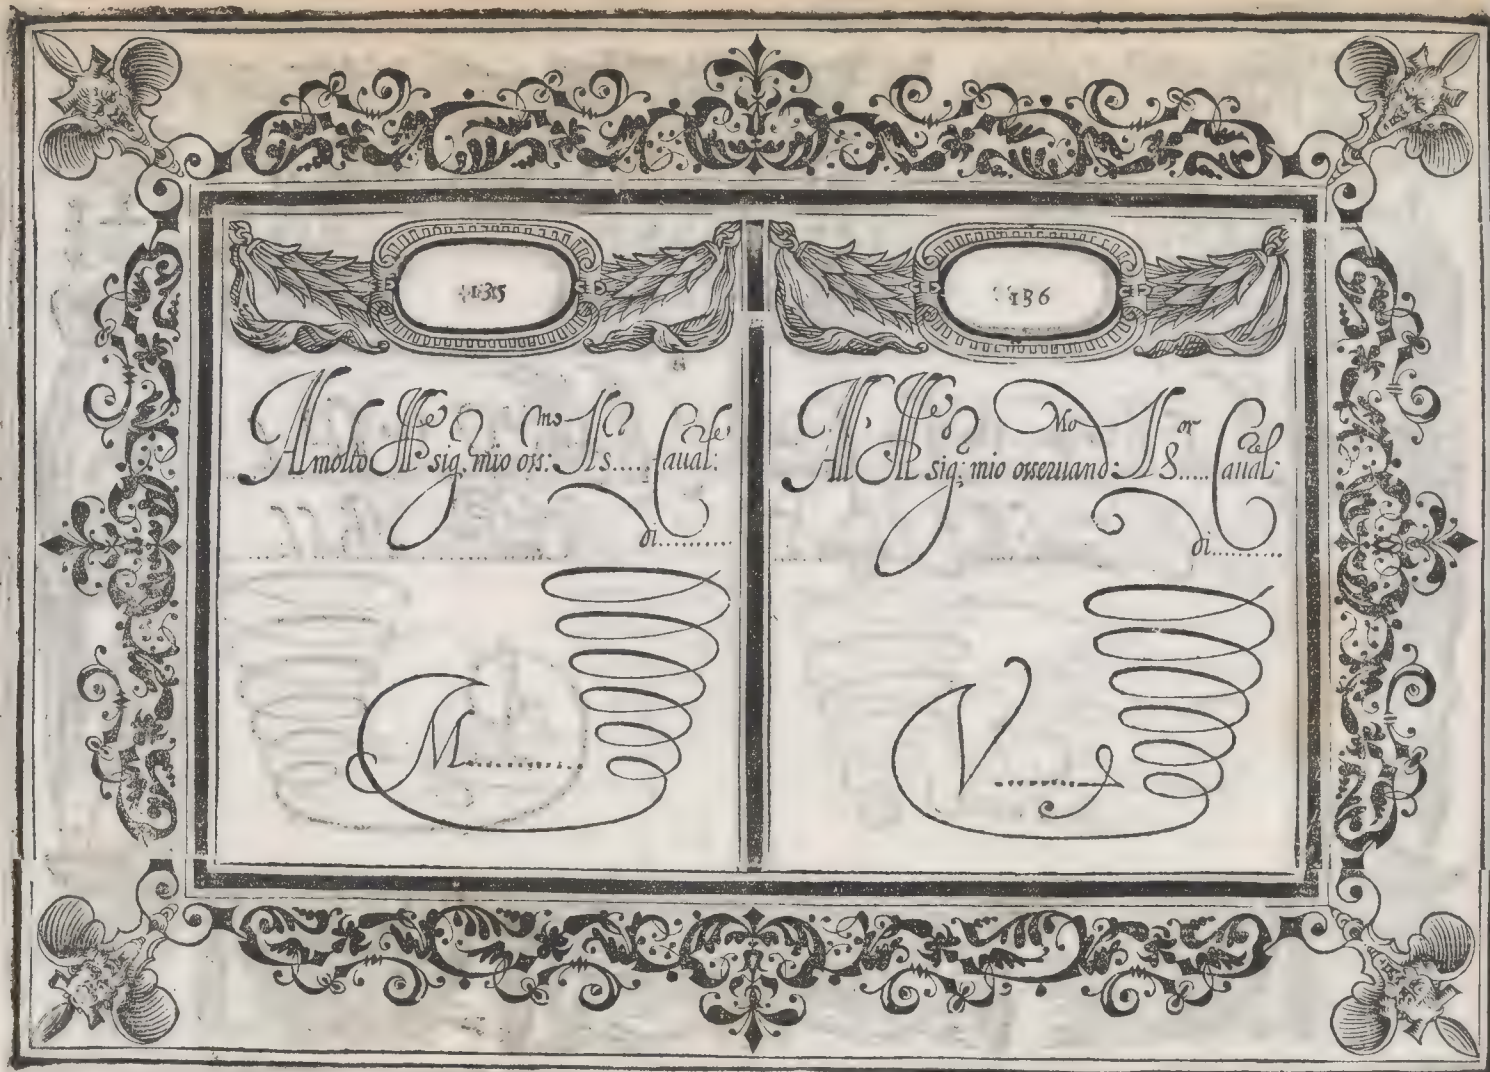 135
Al molto Ill.re sig. mio oss: Il s.....Caual:re
di..........
M............
136
All' Ill.re sig: mio osseruand:mo Il S.or.....Caual:
di..........
V........